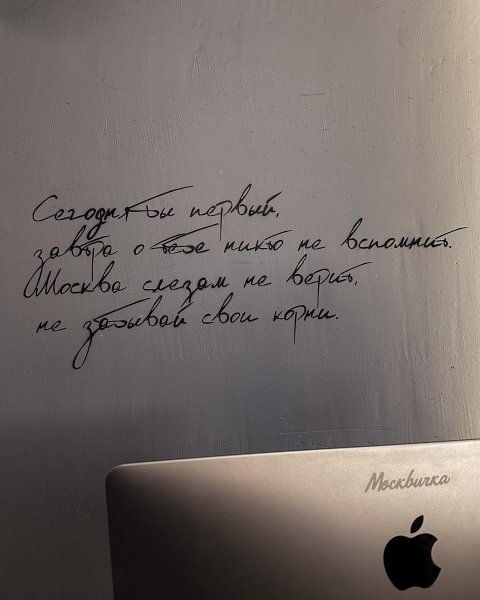 Сегодня ты первый,
завтра о тебе никто не вспомнит.
Москва слезам не верит,
не забывай свои корни.
Москвичка